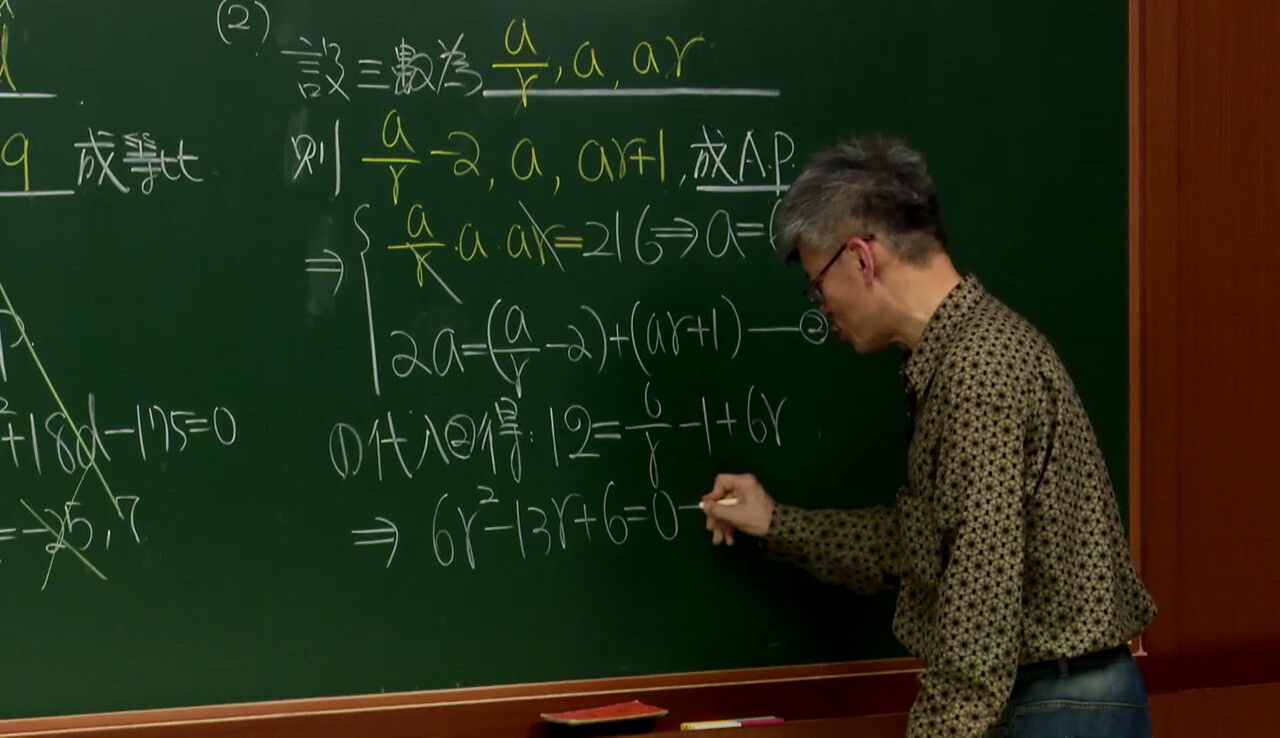 d
9 成等比
²+18d-175=0
=-25,7
(2)
設三數為 a/r, a, ar
則 a/r -2, a, ar+1, 成A.P.
⇒ { a/r · a · ar = 216 ⇒ a=
2a=(a/r -2)+(ar+1) — ②
①代入②得: 12= 6/r -1+6r
⇒ 6r²-13r+6=0